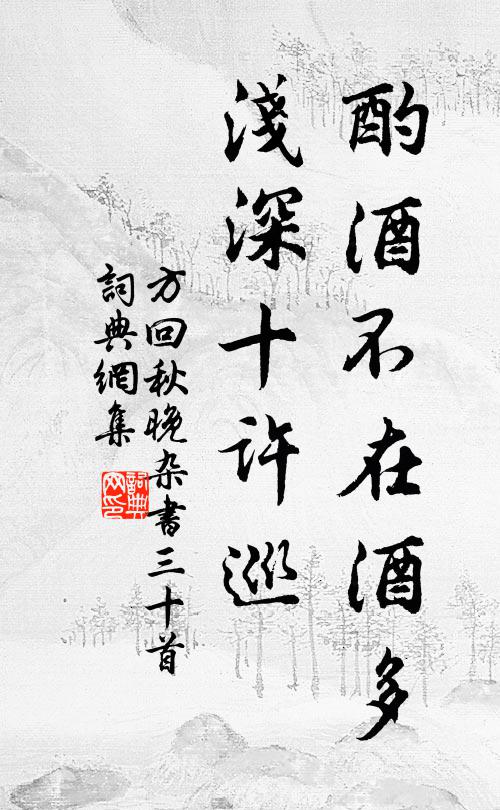 酌酒不在酒多
淺深十許巡
方回秋晚杂書三十首
詞典網集
詞典網印